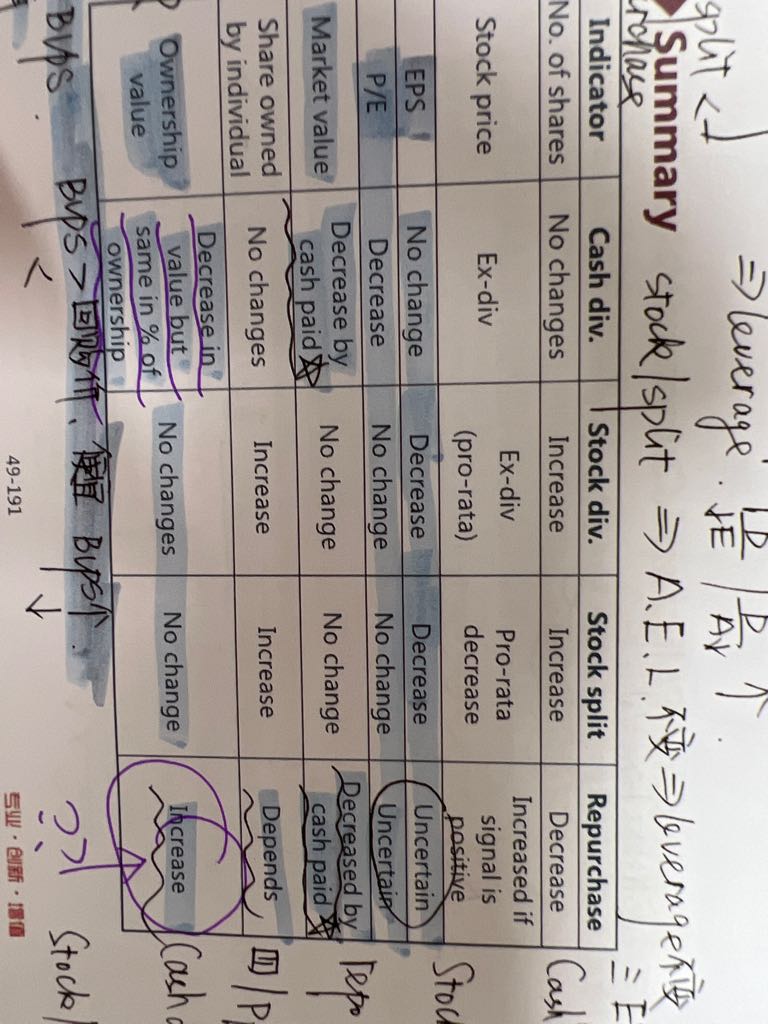 split <1
⇒ leverage. D/E↓ / D/A↓ ↑.
Summary
stock/split ⇒ A.E.L.不变⇒leverage不变
Indicator Cash div. Stock div. Stock split Repurchase
No. of shares No changes Increase Increase Decrease
Stock price Ex-div Ex-div (pro-rata) Pro-rata decrease Increased if signal is positive
EPS No change Decrease Decrease Uncertain
P/E Decrease No change No change Uncertain
Market value Decrease by cash paid No change No change Decreased by cash paid
Share owned by individual No changes Increase Increase Depends
Ownership value Decrease in value but same in % of ownership No changes No change Increase
Cash
Stoc
repo
回/P
Cash d
BVPS.
BVPS > 回购价, 便宜 BVPS↑.
< ↓
Stock/
49-191
专业·创新·增值